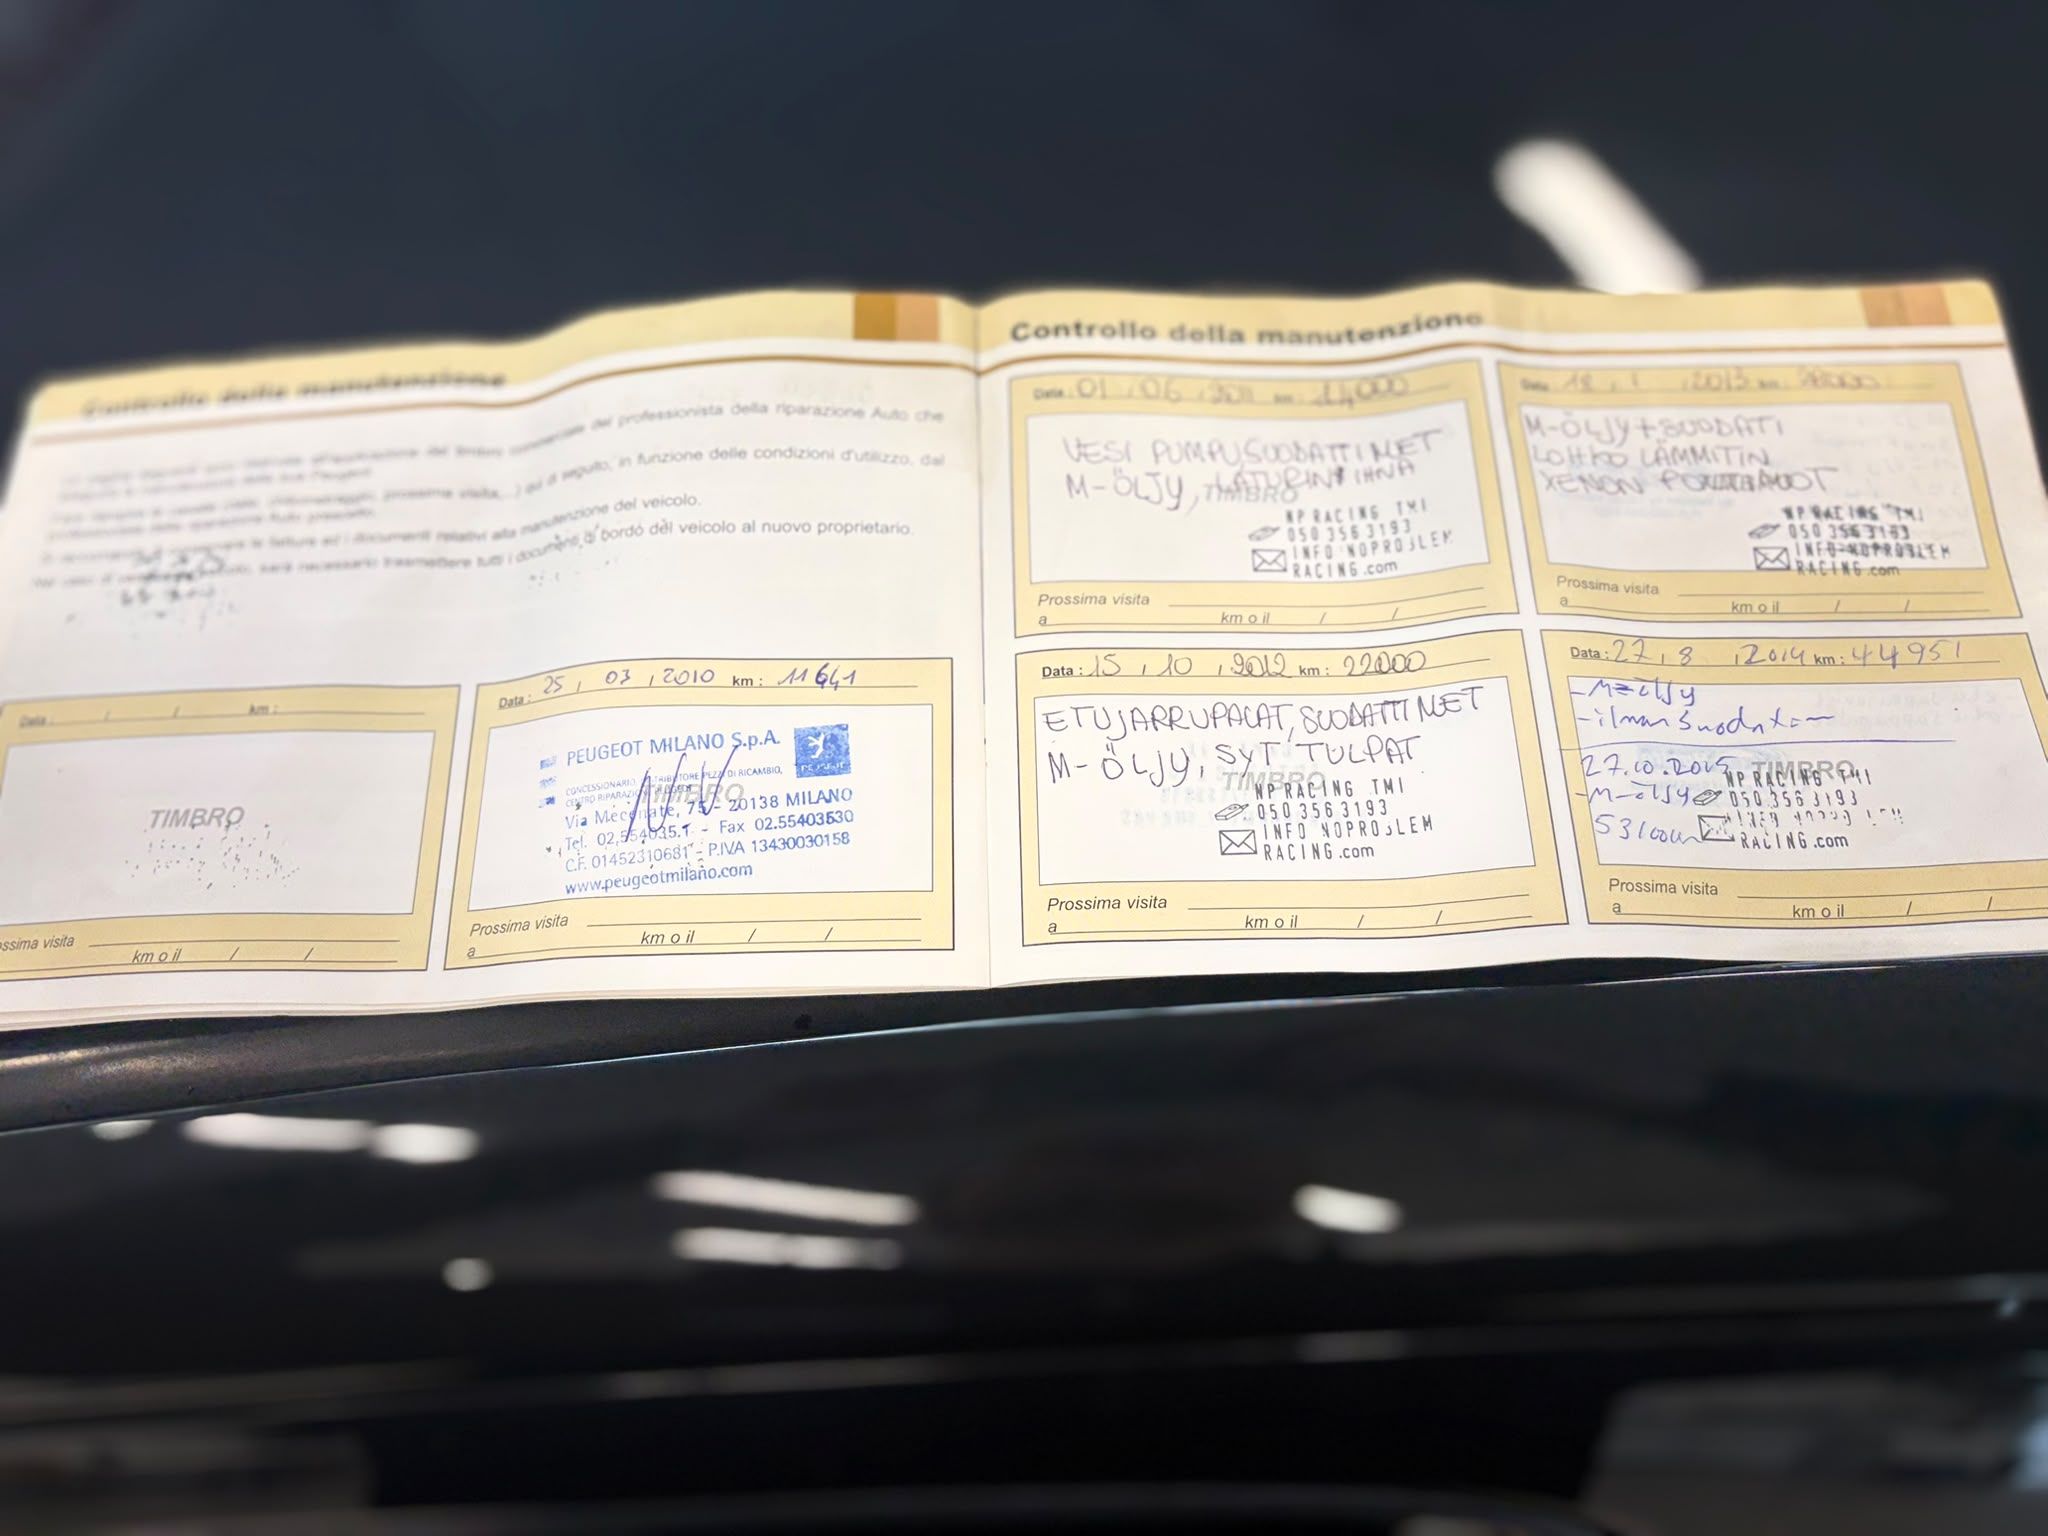 Controllo della manutenzione
professionista della riparazione Auto che
di seguito, in funzione delle condizioni d'utilizzo, dal
relativi alla manutenzione del veicolo.
sarà necessario trasmettere tutti i documenti di bordo del veicolo al nuovo proprietario.
Data : / / km :
TIMBRO
ossima visita
km o il / /
Data : 25 , 03 , 2010 km : 11641
PEUGEOT MILANO S.p.A.
CONCESSIONARIO DISTRIBUTORE PEZZI DI RICAMBIO,
CENTRO RIPARAZIONE PEUGEOT
TIMBRO
Via Mecenate, 75 - 20138 MILANO
Tel. 02.554035.1 - Fax 02.55403530
C.F. 01452310681 - P.IVA 13430030158
www.peugeotmilano.com
Prossima visita
a km o il / /
Controllo della manutenzione
Data : 01 / 06 , 2011 km : 14000
VESI PUMPU, SUODATTIMET
M-ÖLJY, LATURIN HIHNA
TIMBRO
NP RACING TMI
050 3563193
INFO NOPROBLEM
RACING.com
Prossima visita
a km o il / /
Data : 18 , 1 , 2013 km :
M-ÖLJY + SUODATI
LOHKO LÄMMITIN
XENON
NP RACING TMI
050 3563193
INFO NOPROBLEM
RACING.com
Prossima visita
a km o il / /
Data : 15 , 10 , 2012 km : 22000
ETUJARRUPALAT, SUODATTIMET
M-ÖLJY, SYT TULPAT
TIMBRO
NP RACING TMI
050 3563193
INFO NOPROBLEM
RACING.com
Prossima visita
a km o il / /
Data : 27 , 8 , 2014 km : 44951
- M-öljy
- ilman suodatin
27.10.2015
TIMBRO
NP RACING TMI
- M-öljy
050 3563193
53100km
RACING.com
Prossima visita
a km o il / /